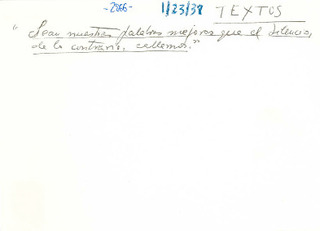 -2066- 1/23/38 TEXTOS
"Sean nuestras palabras mejores que el silencio,
de lo contrario, callemos."